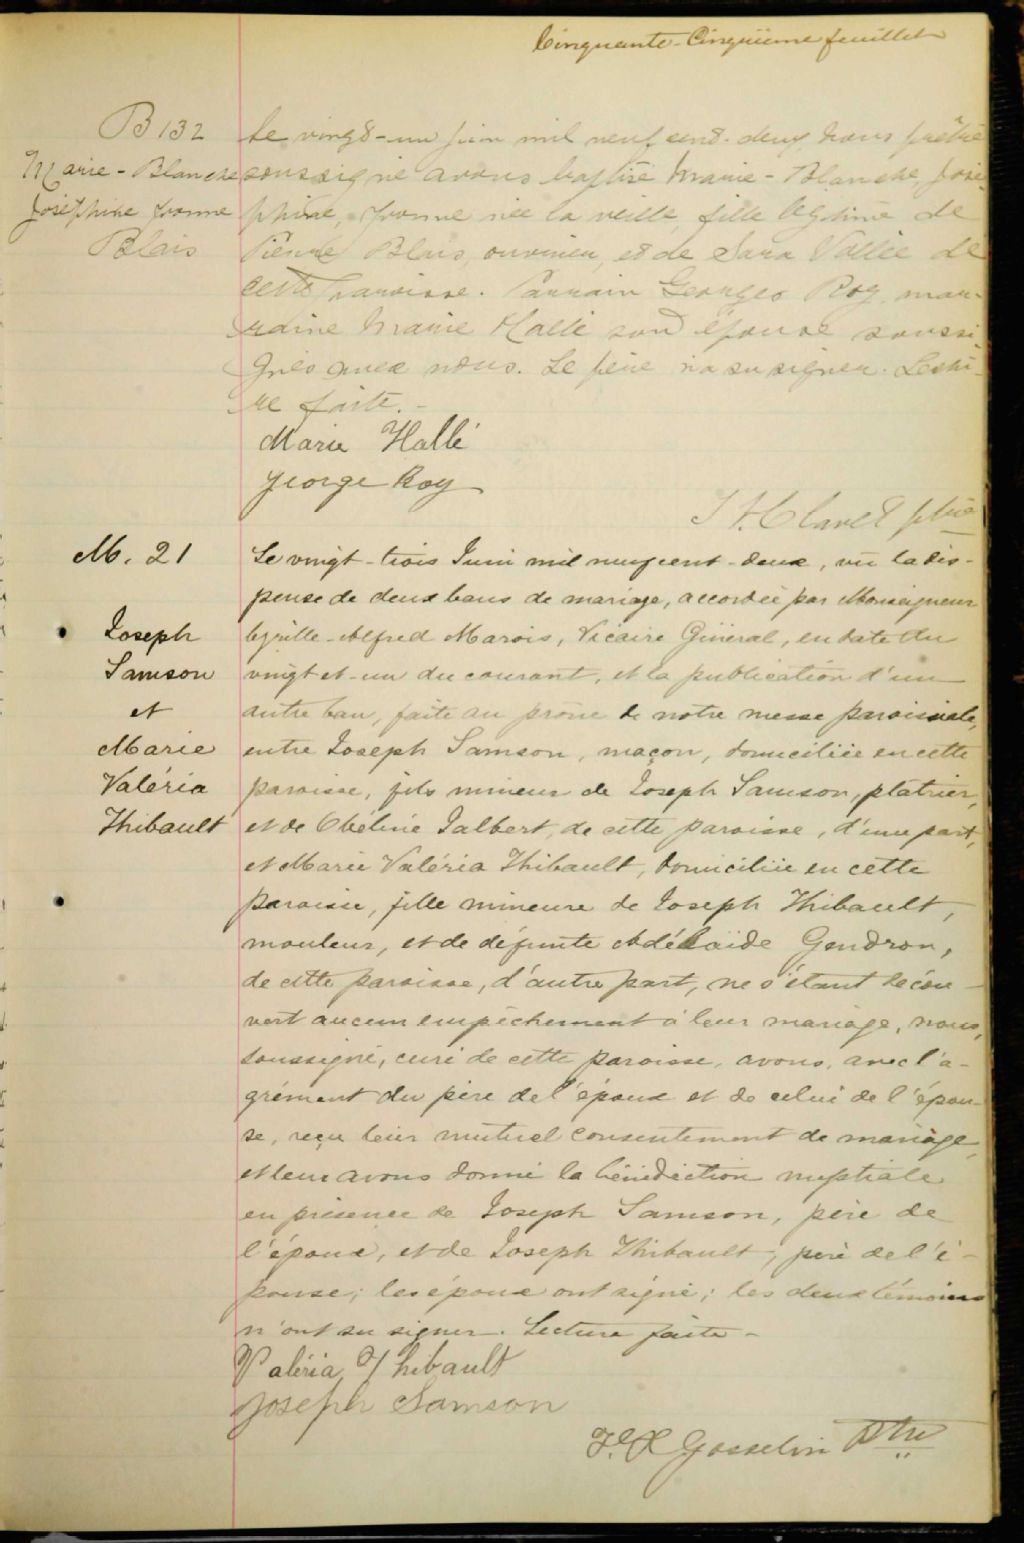 Cinquante-Cinquième feuillet
B 132
Marie-Blanche
Joséphine Yvonne
Blais
Le vingt-un juin mil neuf cent-deux, nous prêtre
soussigné avons baptisé Marie-Blanche, José-
phine, Yvonne née la veille, fille légitime de
Pierre Blais, ouvrier, et de Sara Vallée de
cette paroisse. Parrain Georges Roy, mar-
raine Marie Hallé son épouse soussi-
gnés avec nous. Le père n'a su signer. Lectu-
re faite.-
Marie Hallé
George Roy
ptre
M. 21
Joseph
Samson
et
Marie
Valéria
Thibault
Le vingt-trois Juin mil neuf cent-deux, vu la dis-
pense de deux bans de mariage, accordée par Monseigneur
Cyrille-Alfred Marois, Vicaire Général, en date du
vingt et-un du courant, et la publication d'un
autre ban, faite au prône de notre messe paroissiale,
entre Joseph Samson, maçon, domicilié en cette
paroisse, fils mineur de Joseph Samson, platrier,
et de Obéline Jalbert, de cette paroisse, d'une part,
et Marie Valéria Thibault, domiciliée en cette
paroisse, fille mineure de Joseph Thibault,
mouleur, et de défunte Adélaïde Gendron,
de cette paroisse, d'autre part, ne s'étant décou-
vert aucun empêchement à leur mariage, nous,
soussigné, curé de cette paroisse, avons, avec l'a-
grément du père de l'époux et de celui de l'épou-
se, reçu leur mutuel consentement de mariage,
et leur avons donné la bénédiction nuptiale
en présence de Joseph Samson, père de
l'époux, et de Joseph Thibault, père de l'é-
pouse; les époux ont signé; les deux témoins
n'ont su signer. Lecture faite-
Valéria Thibault
Joseph Samson
F. X Gosselin Ptre